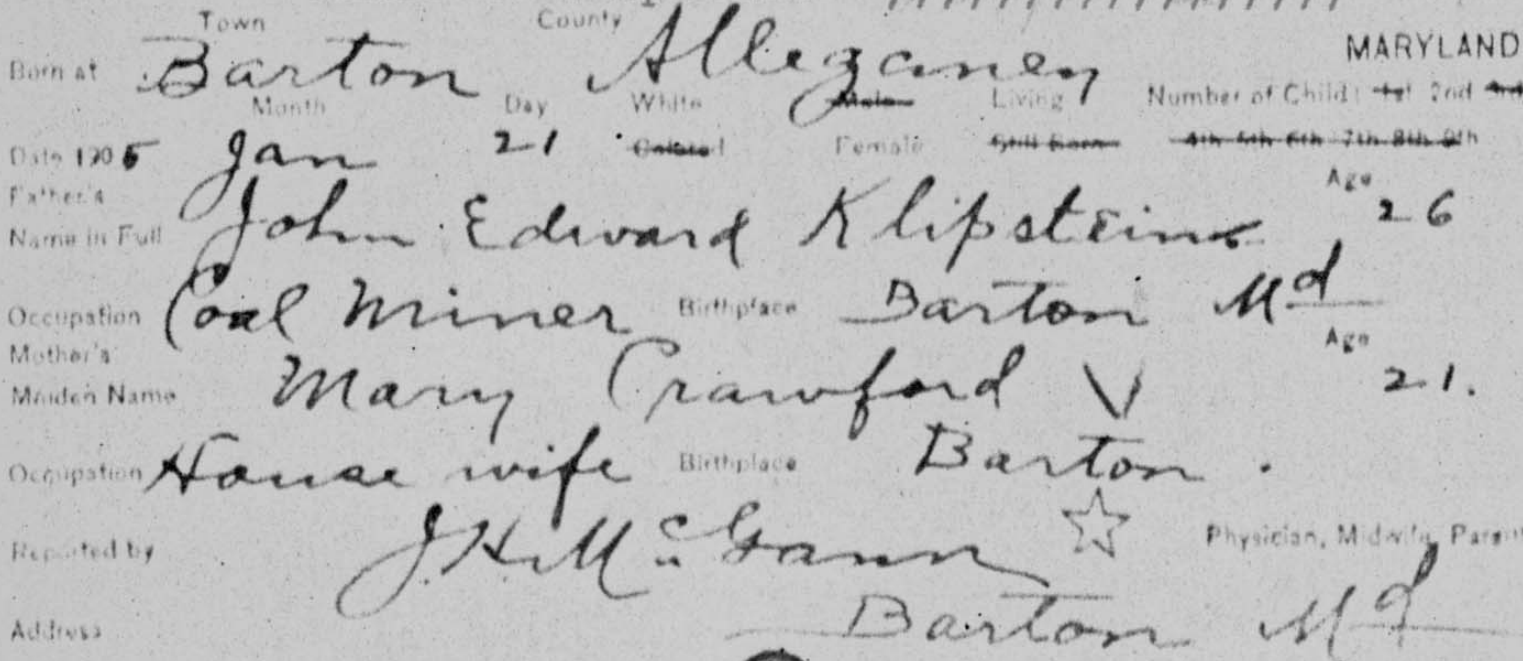 Town County
Born at Barton Alleganey MARYLAND
Month Day White Male Living Number of Child: 1st 2nd 3rd
Date 1905 Jan 21 Colored Female Still Born 4th 5th 6th 7th 8th 9th
Father's Age
Name in Full John Edward Klipstein 26
Occupation Coal Miner Birthplace Barton Md
Mother's Age
Maiden Name Mary Crawford 21.
Occupation House wife Birthplace Barton.
Reported by J.H. McGann Physician, Midwife, Parent
Address Barton Md